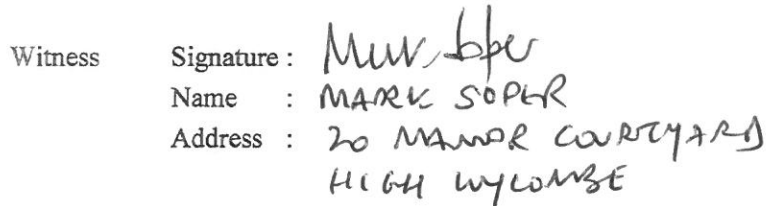 Witness Signature : Mark Soper
Name : MARK SOPER
Address : 20 MANOR COURTYARD
HIGH WYCOMBE